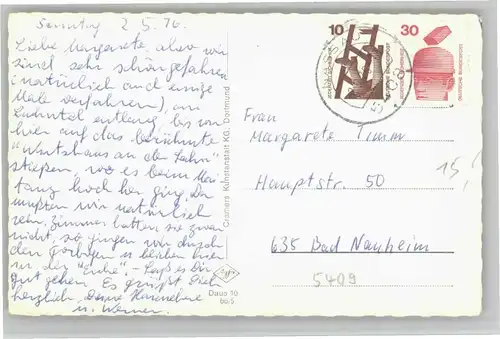 Sonntag 2.5.76.
Liebe Margarete, aber wir
sind sehr schön gefahren
(natürlich auch einige
Male verfahren) am
Lahntal entlang, bis wir
hier auf das berühmte
"Wirtshaus an der Lahn"
stießen, wo es beim Mai
tanz hoch her ging. Da
mußten wir natürlich
rein, Zimmer hatten sie zwar
nicht, so gingen wir
den u. bleiben hier
in der "Eiche" - Laß es Dir
gut gehen. Es grüßt Dich
herzlich, Deine Hannelore
u. Werner.
Cramers Kunstanstalt KG, Dortmund
Daus 10
10
30
DEUTSCHE BUNDESPOST
Frau
Margarete Timm
Hauptstr. 50
635 Bad Nauheim
5409
15,